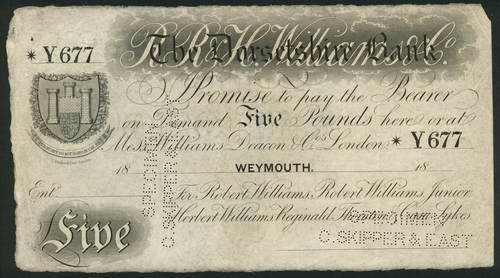 R. R. & H. Williams & Co.
* Y 677
The Dorsetshire Bank
I Promise to pay the Bearer
on Demand Five Pounds here or at
Messrs Williams Deacon & Co. London * Y 677
18 WEYMOUTH. 18
Ent. For Robert Williams, Robert Williams Junior,
Herbert Williams, Reginald Thornton, Sykes.
Five
SPECIMEN
C. SKIPPER & EAST
SPECIMEN
C. SKIPPER & EAST